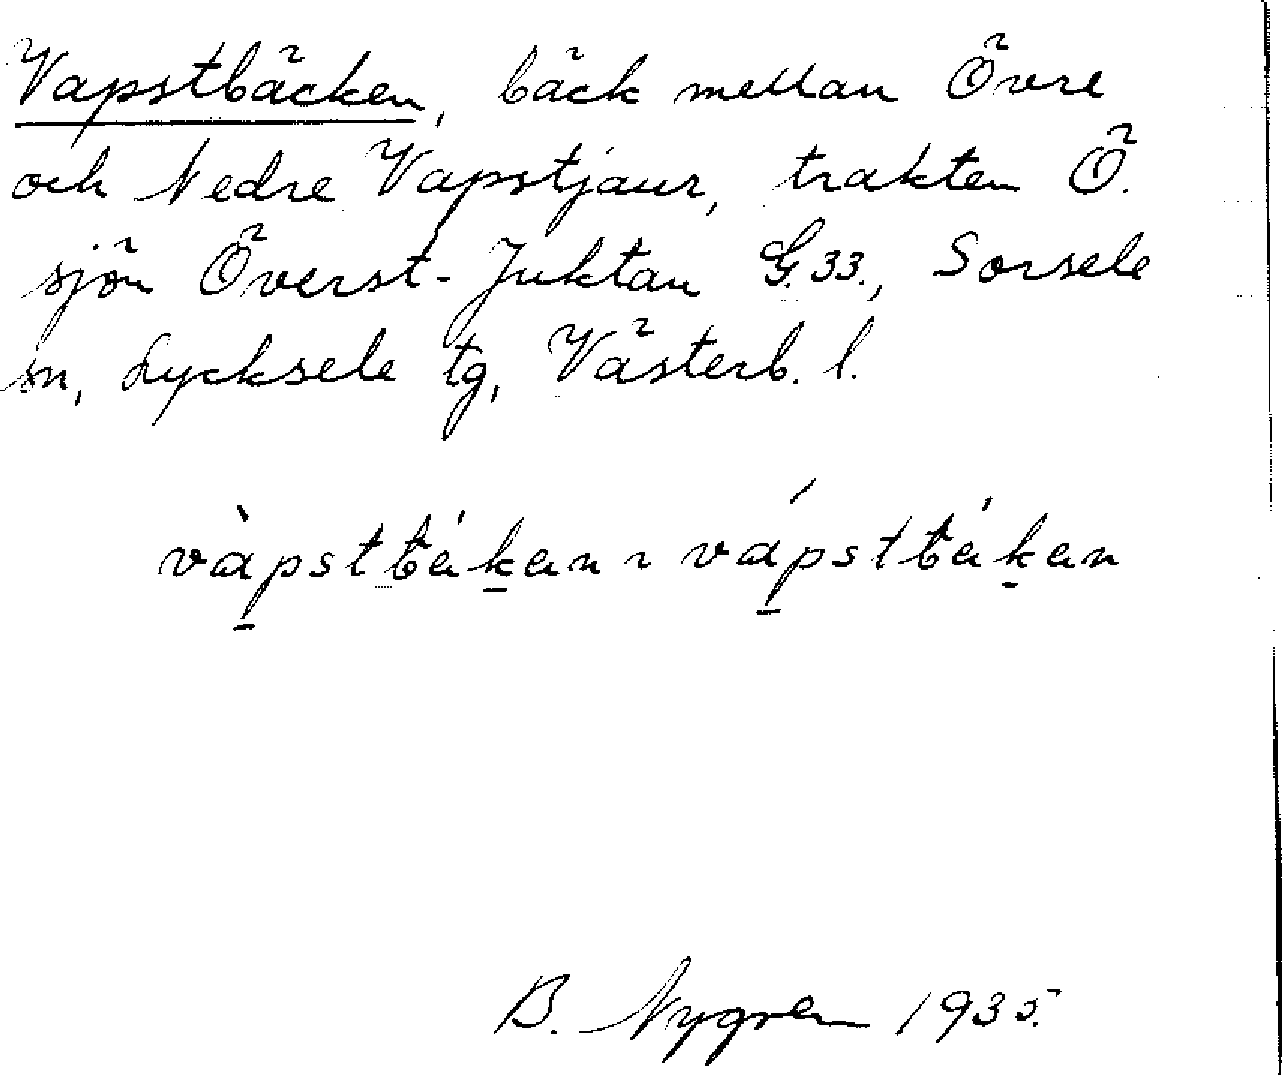 Vapstbäcken, bäck mellan Övre
och Nedre Vapstjaur, trakten Ö.
sjön Överst-Juktan G.33., Sorsele
sn, Lycksele tg, Västerb. l.
vàpstbákan ~ vápstbákan
B. Nygren 1935.